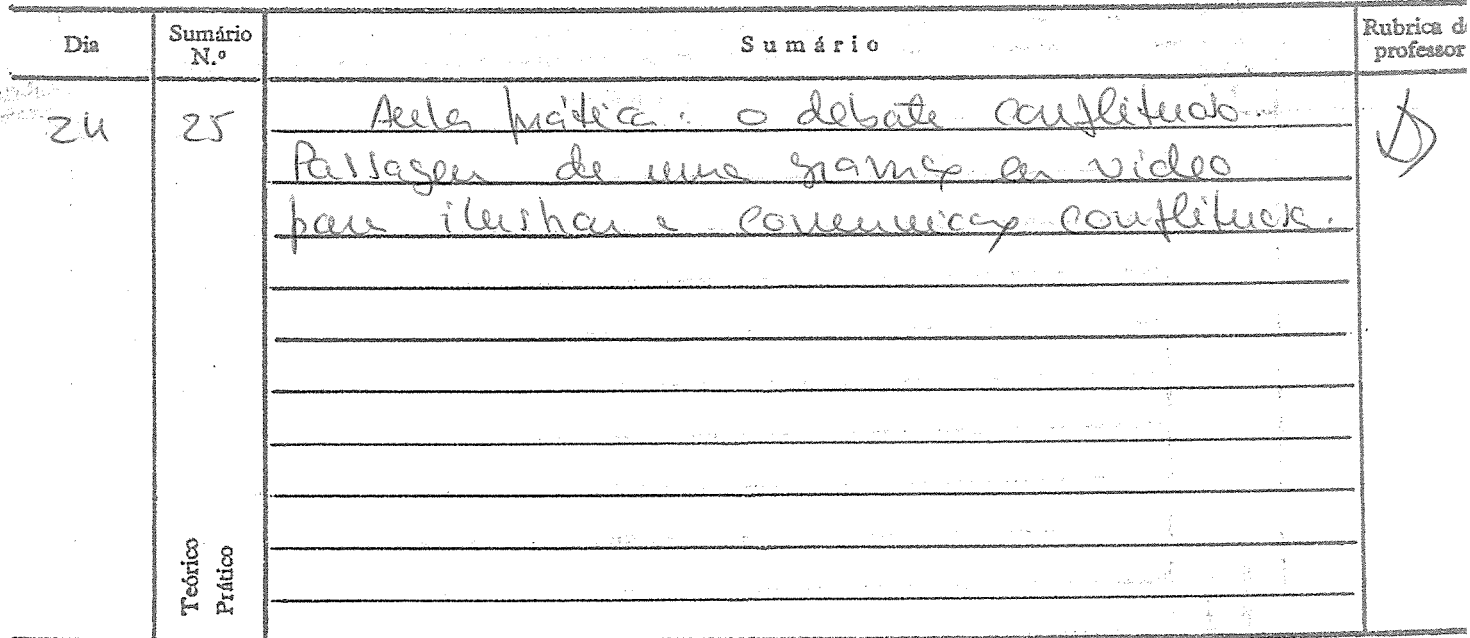 Dia
Sumário
N.º
Sumário
Rubrica do
professor
24
25
Aula prática: o debate conflituoso.
Passagem de uma em vídeo
para ilustrar a comunicação conflituosa.
Teórico
Prático